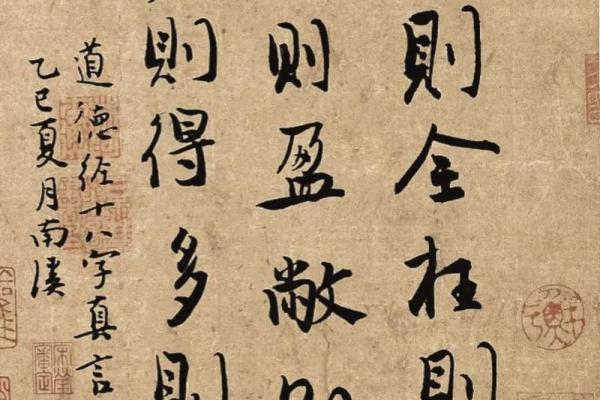 則全枉則
則盈敝
則得多則
道德经十八字真言
乙巳夏月南溪